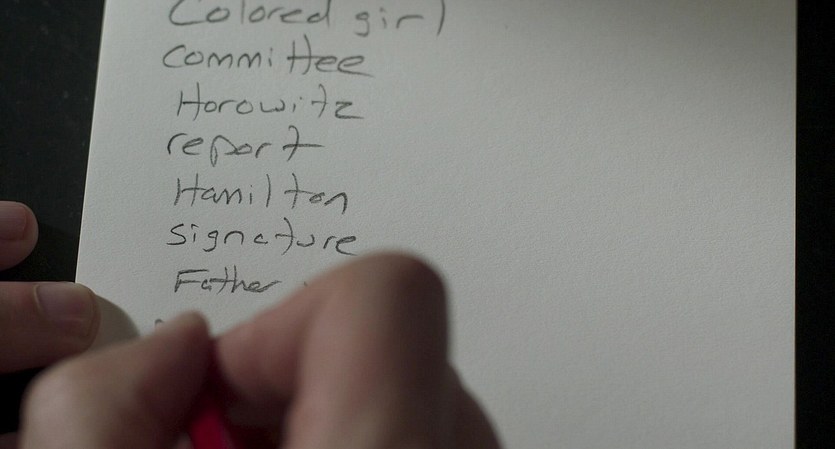 Colored girl
Committee
Horowitz
report
Hamilton
signature
Father